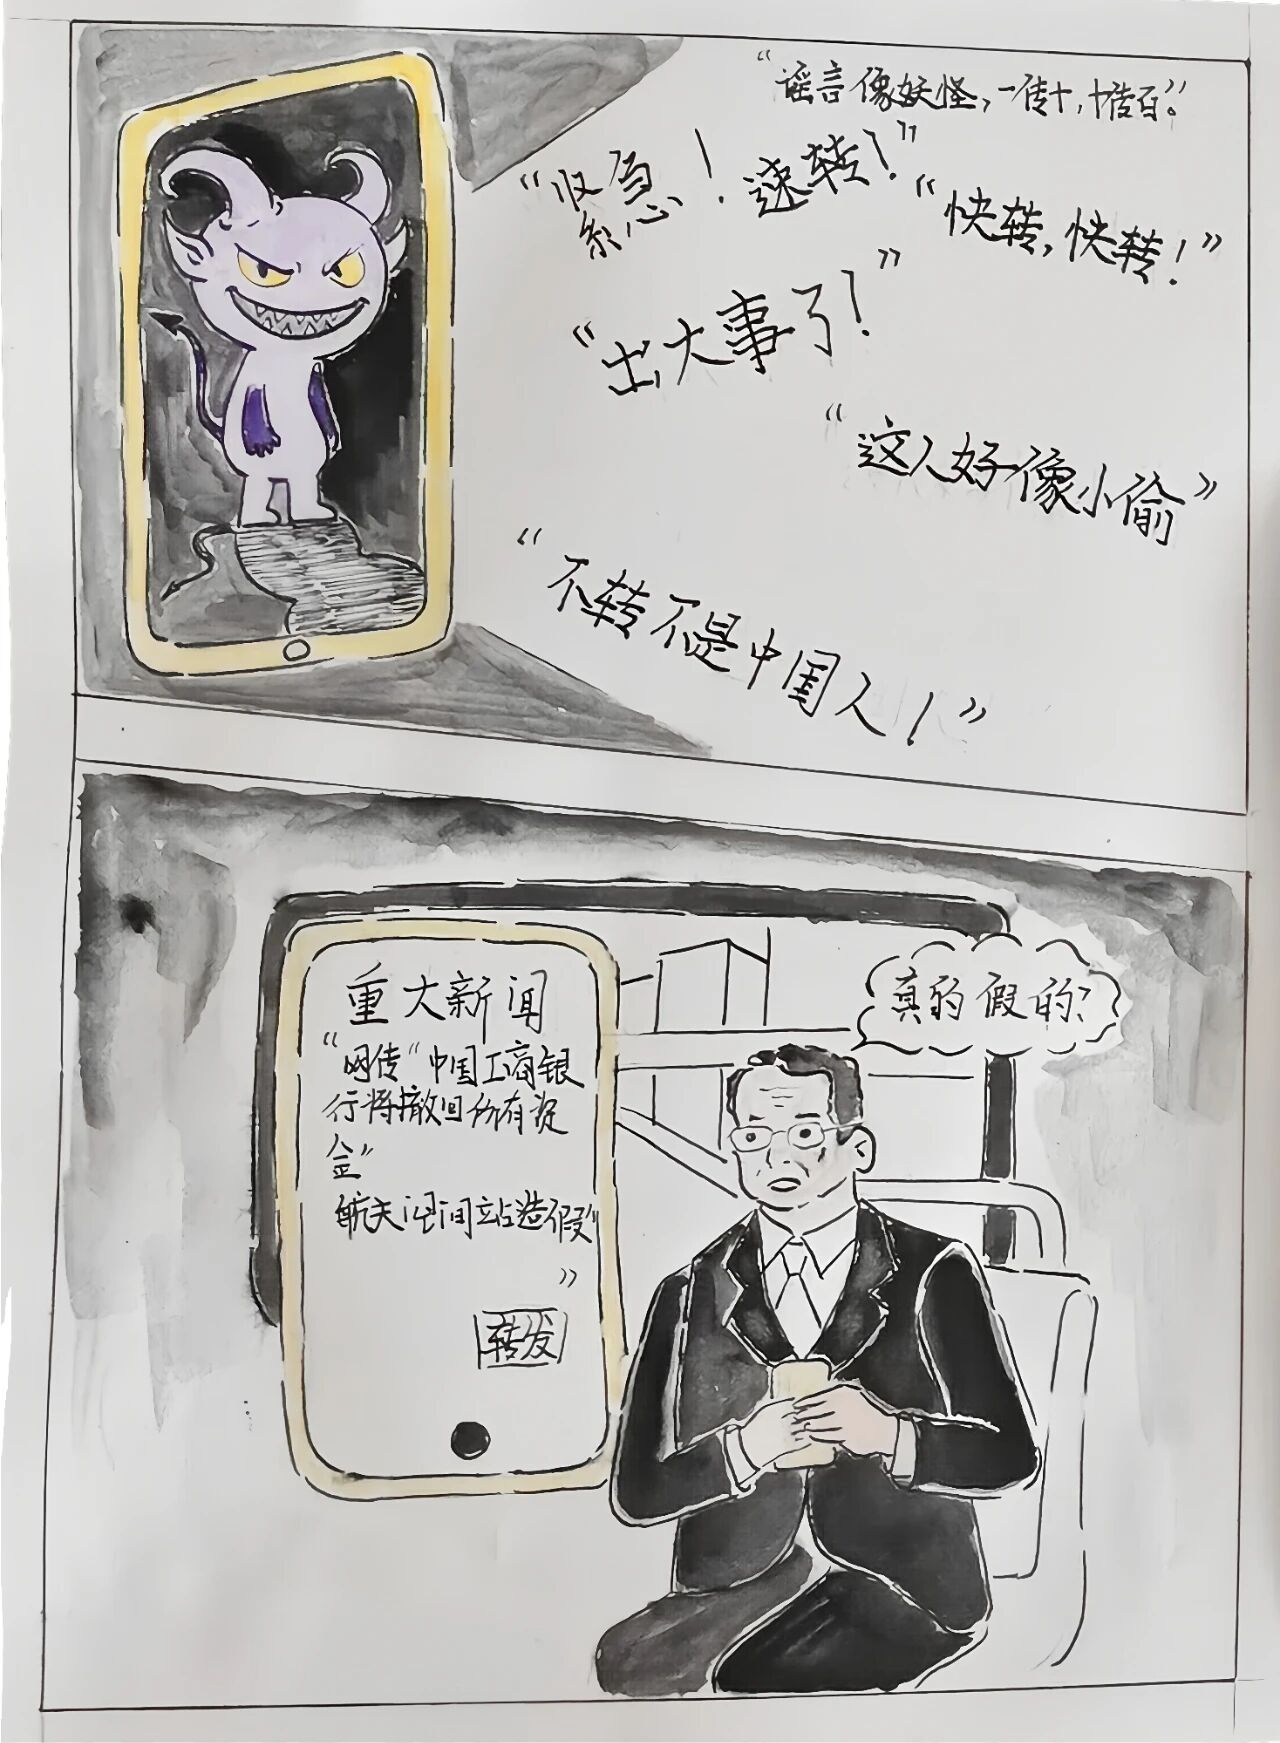 “谣言像妖怪，一传十，十传百。”
“紧急！速转！”
“快转，快转！”
“出大事了！”
“这人好像小偷”
“不转不是中国人！”
重大新闻
“网传“中国工商银
行将撤回所有资
金”
航天空间站造假”
转发
真的假的?